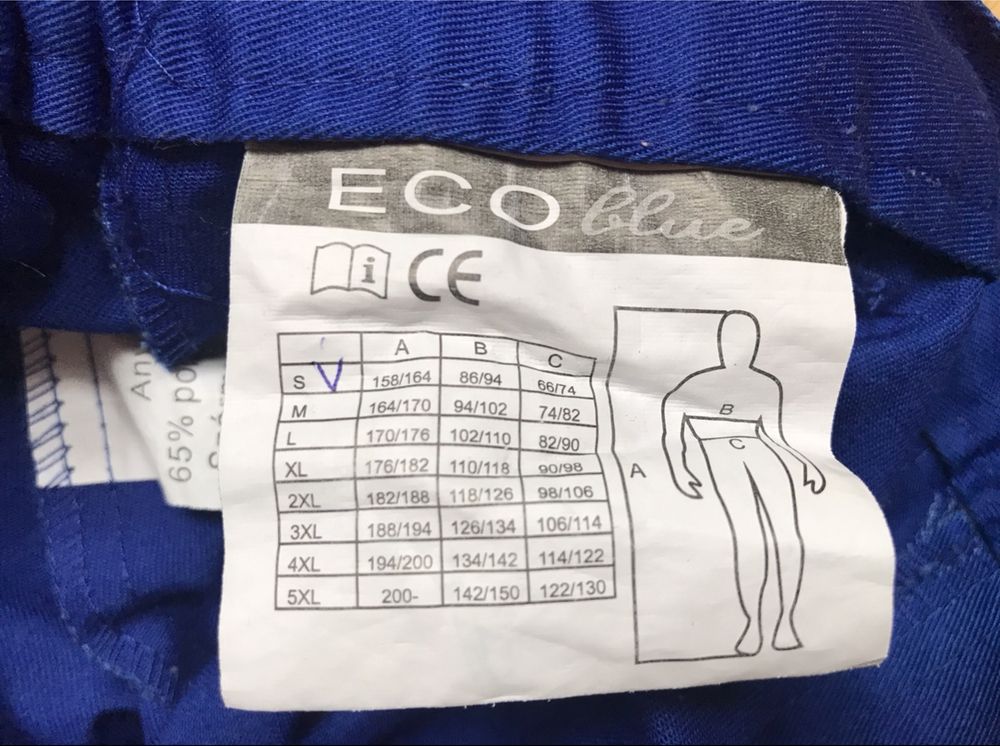 ECO blue
i CE
A B C
S V 158/164 86/94 66/74
M 164/170 94/102 74/82
L 170/176 102/110 82/90
XL 176/182 110/118 90/98
2XL 182/188 118/126 98/106
3XL 188/194 126/134 106/114
4XL 194/200 134/142 114/122
5XL 200- 142/150 122/130
A
B
C
An
65% po